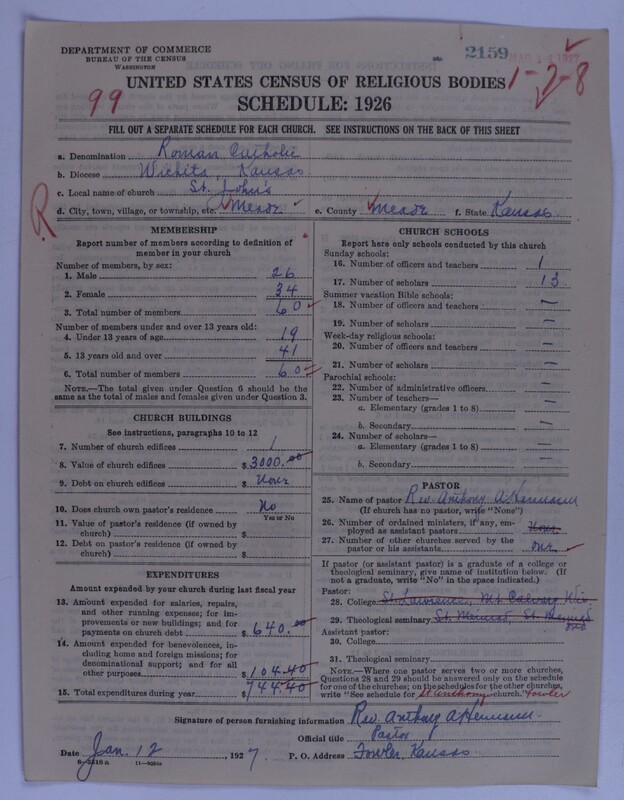 DEPARTMENT OF COMMERCE
BUREAU OF THE CENSUS
WASHINGTON
2159
1-2-8
99
UNITED STATES CENSUS OF RELIGIOUS BODIES
SCHEDULE: 1926
FILL OUT A SEPARATE SCHEDULE FOR EACH CHURCH. SEE INSTRUCTIONS ON THE BACK OF THIS SHEET
a. Denomination Roman Catholic
b. Diocese Wichita, Kansas
c. Local name of church St. John's
d. City, town, village, or township, etc. Meade e. County Meade f. State Kansas
R
MEMBERSHIP
Report number of members according to definition of
member in your church
Number of members, by sex:
1. Male 26
2. Female 34
3. Total number of members 60
Number of members under and over 13 years old:
4. Under 13 years of age 19
5. 13 years old and over 41
6. Total number of members 60
NOTE.—The total given under Question 6 should be the
same as the total of males and females given under Question 3.
CHURCH BUILDINGS
See instructions, paragraphs 10 to 12
7. Number of church edifices 1
8. Value of church edifices $3000.00
9. Debt on church edifices $None
10. Does church own pastor's residence No
Yes or No
11. Value of pastor's residence (if owned by
church) $
12. Debt on pastor's residence (if owned by
church) $
EXPENDITURES
Amount expended by your church during last fiscal year
13. Amount expended for salaries, repairs,
and other running expenses; for im-
provements or new buildings; and for
payments on church debt $640.00
14. Amount expended for benevolences, in-
cluding home and foreign missions; for
denominational support; and for all
other purposes $104.40
15. Total expenditures during year $744.40
CHURCH SCHOOLS
Report here only schools conducted by this church
Sunday schools:
16. Number of officers and teachers 1
17. Number of scholars 13
Summer vacation Bible schools:
18. Number of officers and teachers —
19. Number of scholars —
Week-day religious schools:
20. Number of officers and teachers —
21. Number of scholars —
Parochial schools:
22. Number of administrative officers —
23. Number of teachers—
a. Elementary (grades 1 to 8) —
b. Secondary —
24. Number of scholars—
a. Elementary (grades 1 to 8) —
b. Secondary —
PASTOR
25. Name of pastor Rev. Anthony A. Hermann
(If church has no pastor, write "None")
26. Number of ordained ministers, if any, em-
ployed as assistant pastors None
27. Number of other churches served by the
pastor or his assistants one
If pastor (or assistant pastor) is a graduate of a college or
theological seminary, give name of institution below. (If
not a graduate, write "No" in the space indicated.)
Pastor:
28. College St. Lawrence, Mt Calvary Wis
29. Theological seminary St. Meinrad, St. Meinrad Ind
Assistant pastor:
30. College
31. Theological seminary
NOTE.—Where one pastor serves two or more churches,
Questions 28 and 29 should be answered only on the schedule
for one of the churches; on the schedules for the other churches,
write "See schedule for St Anthony church." Fowler
Signature of person furnishing information Rev. Anthony A Hermann
Official title Pastor
Date Jan. 12, 1927. P. O. Address Fowler, Kansas